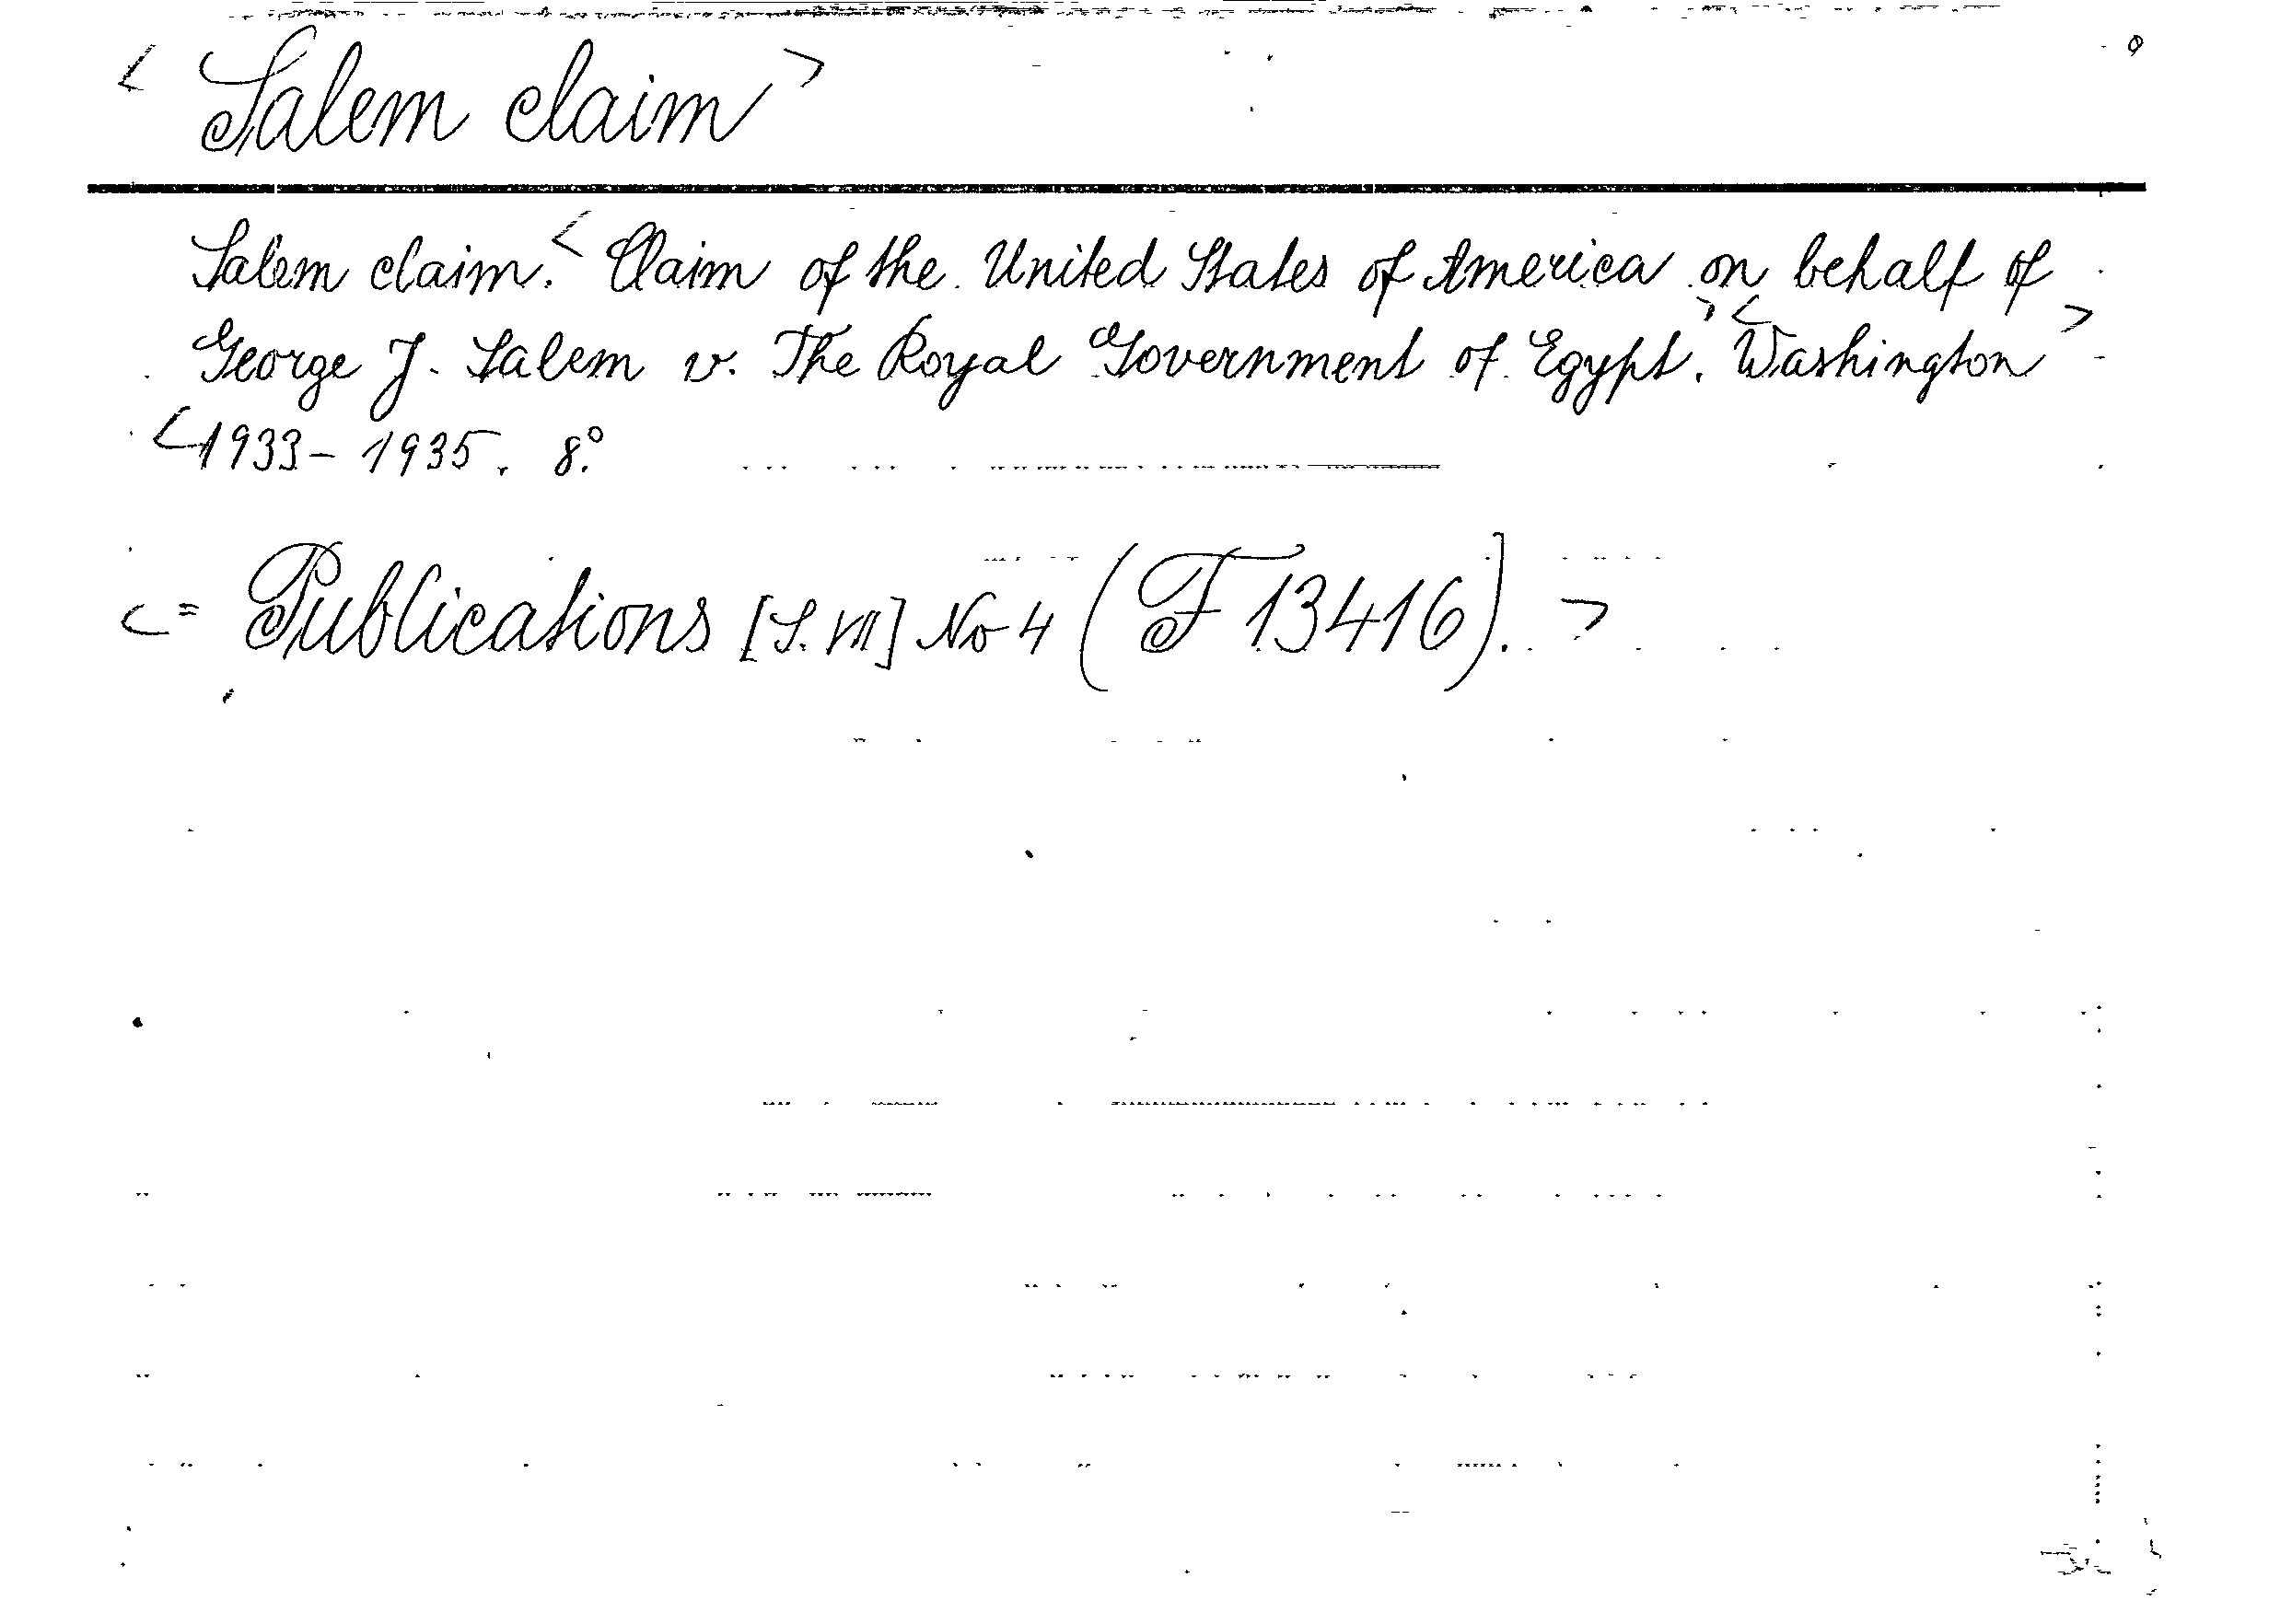 < Salem claim >
Salem claim. < Claim of the United States of America on behalf of
George J. Salem v. The Royal Government of Egypt. > < Washington >
< 1933-1935. 8°.
< = Publications [S. VII] No 4 (F 13416). >